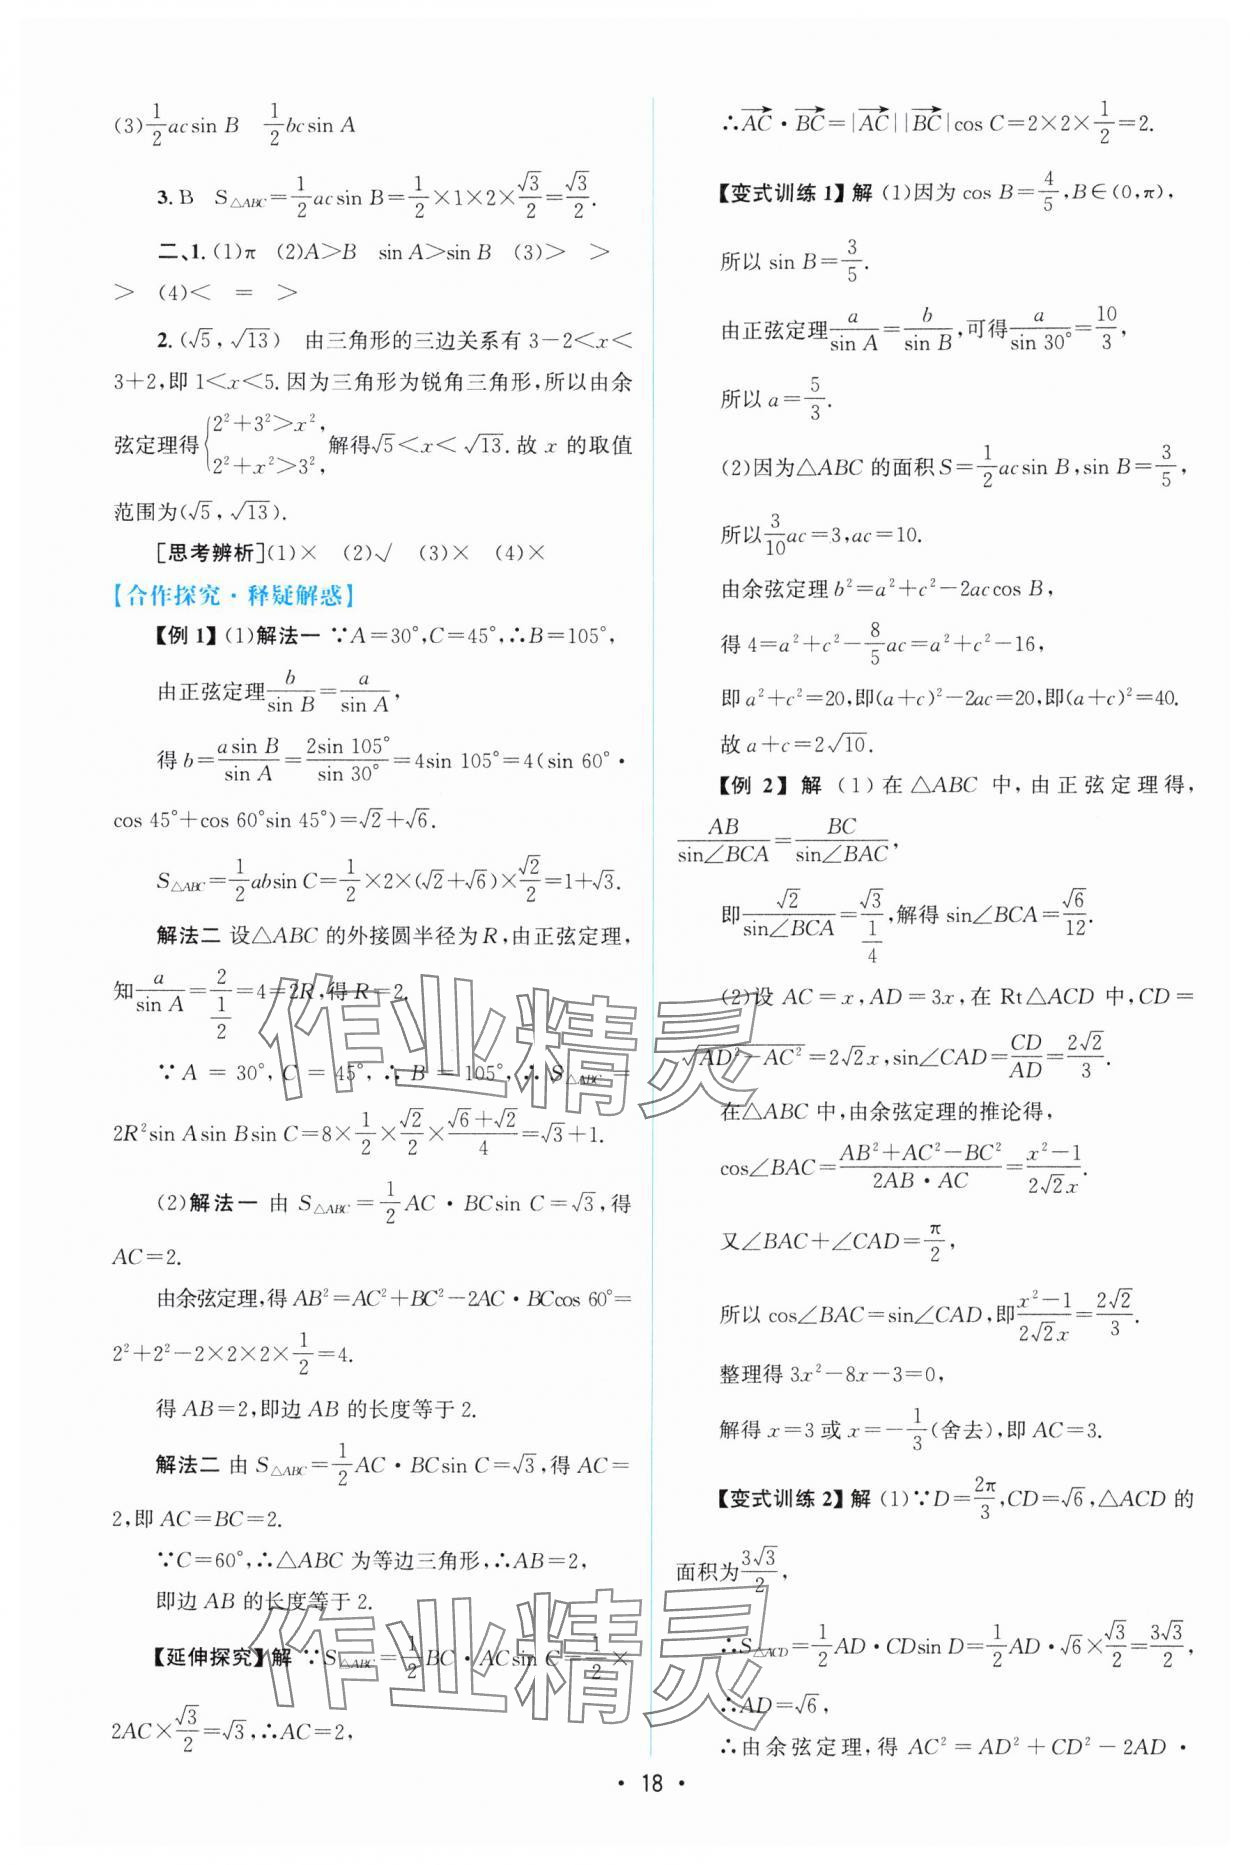 (3) 1/2 acsin B　1/2 bcsin A
3. B　S△ABC=1/2 acsin B=1/2×1×2×√3/2=√3/2.
二、1. (1)π　(2)A>B　sin A>sin B　(3)>　>
>　(4)<　=　>
2. (√5,√13)　由三角形的三边关系有 3-2<x<
3+2,即 1<x<5. 因为三角形为锐角三角形,所以由余
弦定理得{2²+3²>x², 2²+x²>3², 解得√5<x<√13. 故 x 的取值
范围为(√5,√13).
[思考辨析](1)×　(2)√　(3)×　(4)×
【合作探究·释疑解惑】
【例 1】(1)解法一 ∵A=30°,C=45°,∴B=105°,
由正弦定理 b/sin B=a/sin A,
得 b=asin B/sin A=2sin 105°/sin 30°=4sin 105°=4(sin 60°·
cos 45°+cos 60°sin 45°)=√2+√6.
S△ABC=1/2 absin C=1/2×2×(√2+√6)×√2/2=1+√3.
解法二 设△ABC 的外接圆半径为 R,由正弦定理,
知 a/sin A=2/(1/2)=4=2R,得 R=2.
∵A=30°,C=45°,∴B=105°,∴S△ABC=
2R²sin Asin Bsin C=8×1/2×√2/2×(√6+√2)/4=√3+1.
(2)解法一 由 S△ABC=1/2 AC·BCsin C=√3,得
AC=2.
由余弦定理,得 AB²=AC²+BC²-2AC·BCcos 60°=
2²+2²-2×2×2×1/2=4.
得 AB=2,即边 AB 的长度等于 2.
解法二 由 S△ABC=1/2 AC·BCsin C=√3,得 AC=
2,即 AC=BC=2.
∵C=60°,∴△ABC 为等边三角形,∴AB=2,
即边 AB 的长度等于 2.
【延伸探究】解 ∵S△ABC=1/2 BC·ACsin C=1/2×
2AC×√3/2=√3,∴AC=2,
∴AC→·BC→=|AC→||BC→|cos C=2×2×1/2=2.
【变式训练 1】解 (1)因为 cos B=4/5,B∈(0,π),
所以 sin B=3/5.
由正弦定理 a/sin A=b/sin B,可得 a/sin 30°=10/3,
所以 a=5/3.
(2)因为△ABC 的面积 S=1/2 acsin B,sin B=3/5,
所以 3/10 ac=3,ac=10.
由余弦定理 b²=a²+c²-2accos B,
得 4=a²+c²-8/5 ac=a²+c²-16,
即 a²+c²=20,即(a+c)²-2ac=20,即(a+c)²=40.
故 a+c=2√10.
【例 2】 解 (1)在△ABC 中,由正弦定理得,
AB/sin∠BCA=BC/sin∠BAC,
即 √2/sin∠BCA=√3/(1/4),解得 sin∠BCA=√6/12.
(2)设 AC=x,AD=3x,在 Rt△ACD 中,CD=
√(AD²-AC²)=2√2x,sin∠CAD=CD/AD=2√2/3.
在△ABC 中,由余弦定理的推论得,
cos∠BAC=(AB²+AC²-BC²)/(2AB·AC)=(x²-1)/(2√2x).
又∠BAC+∠CAD=π/2,
所以 cos∠BAC=sin∠CAD,即(x²-1)/(2√2x)=2√2/3.
整理得 3x²-8x-3=0,
解得 x=3 或 x=-1/3(舍去),即 AC=3.
【变式训练 2】解 (1)∵D=2π/3,CD=√6,△ACD 的
面积为 3√3/2,
∴S△ACD=1/2 AD·CDsin D=1/2 AD·√6×√3/2=3√3/2,
∴AD=√6,
∴由余弦定理,得 AC²=AD²+CD²-2AD·
·18·
作业精灵
作业精灵